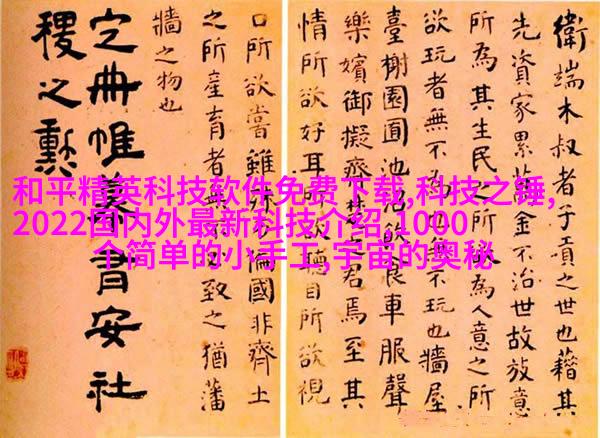 和平精英科技软件免费下载,科技之锤,
2022国内外最新科技介绍,1000
个简单的小手工,宇宙的奥秘
衛端木叔者子貢之世也藉其
先資家累萬金不治世故放意
所為其生民之所為人意之所
欲玩者無不為也無不玩也牆屋
臺榭園囿池沼飲食車服聲
樂嬪御擬齊楚之君焉至其
情所欲好耳所欲聽目所欲視
口所欲嘗雖殊偏國非齊土
之所產育者無不致之猶藩
牆之物也
定冊帷幕有安社
稷之勳